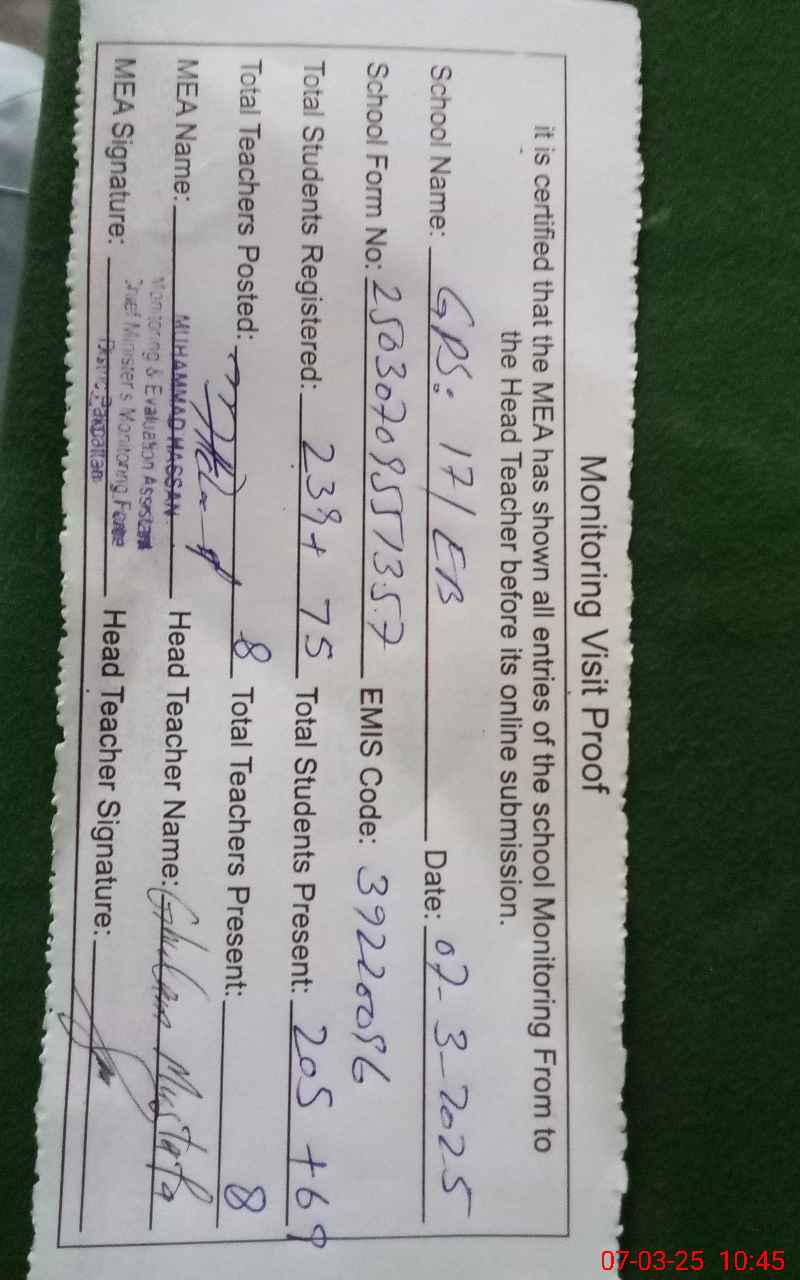 Monitoring Visit Proof
it is certified that the MEA has shown all entries of the school Monitoring From to
the Head Teacher before its online submission.
School Name: GPS: 17/EB Date: 07-3-2025
School Form No: EMIS Code: 39220096
Total Students Registered: 239+ 75 Total Students Present: 205 +69
Total Teachers Posted: 8 Total Teachers Present: 8
MEA Name: MUHAMMAD HASSAN Head Teacher Name: Ghulam Mustafa
Monitoring & Evaluation Assistant
MEA Signature: Chief Minister's Monitoring Force Head Teacher Signature:
District Pakpattan
07-03-25 10:45